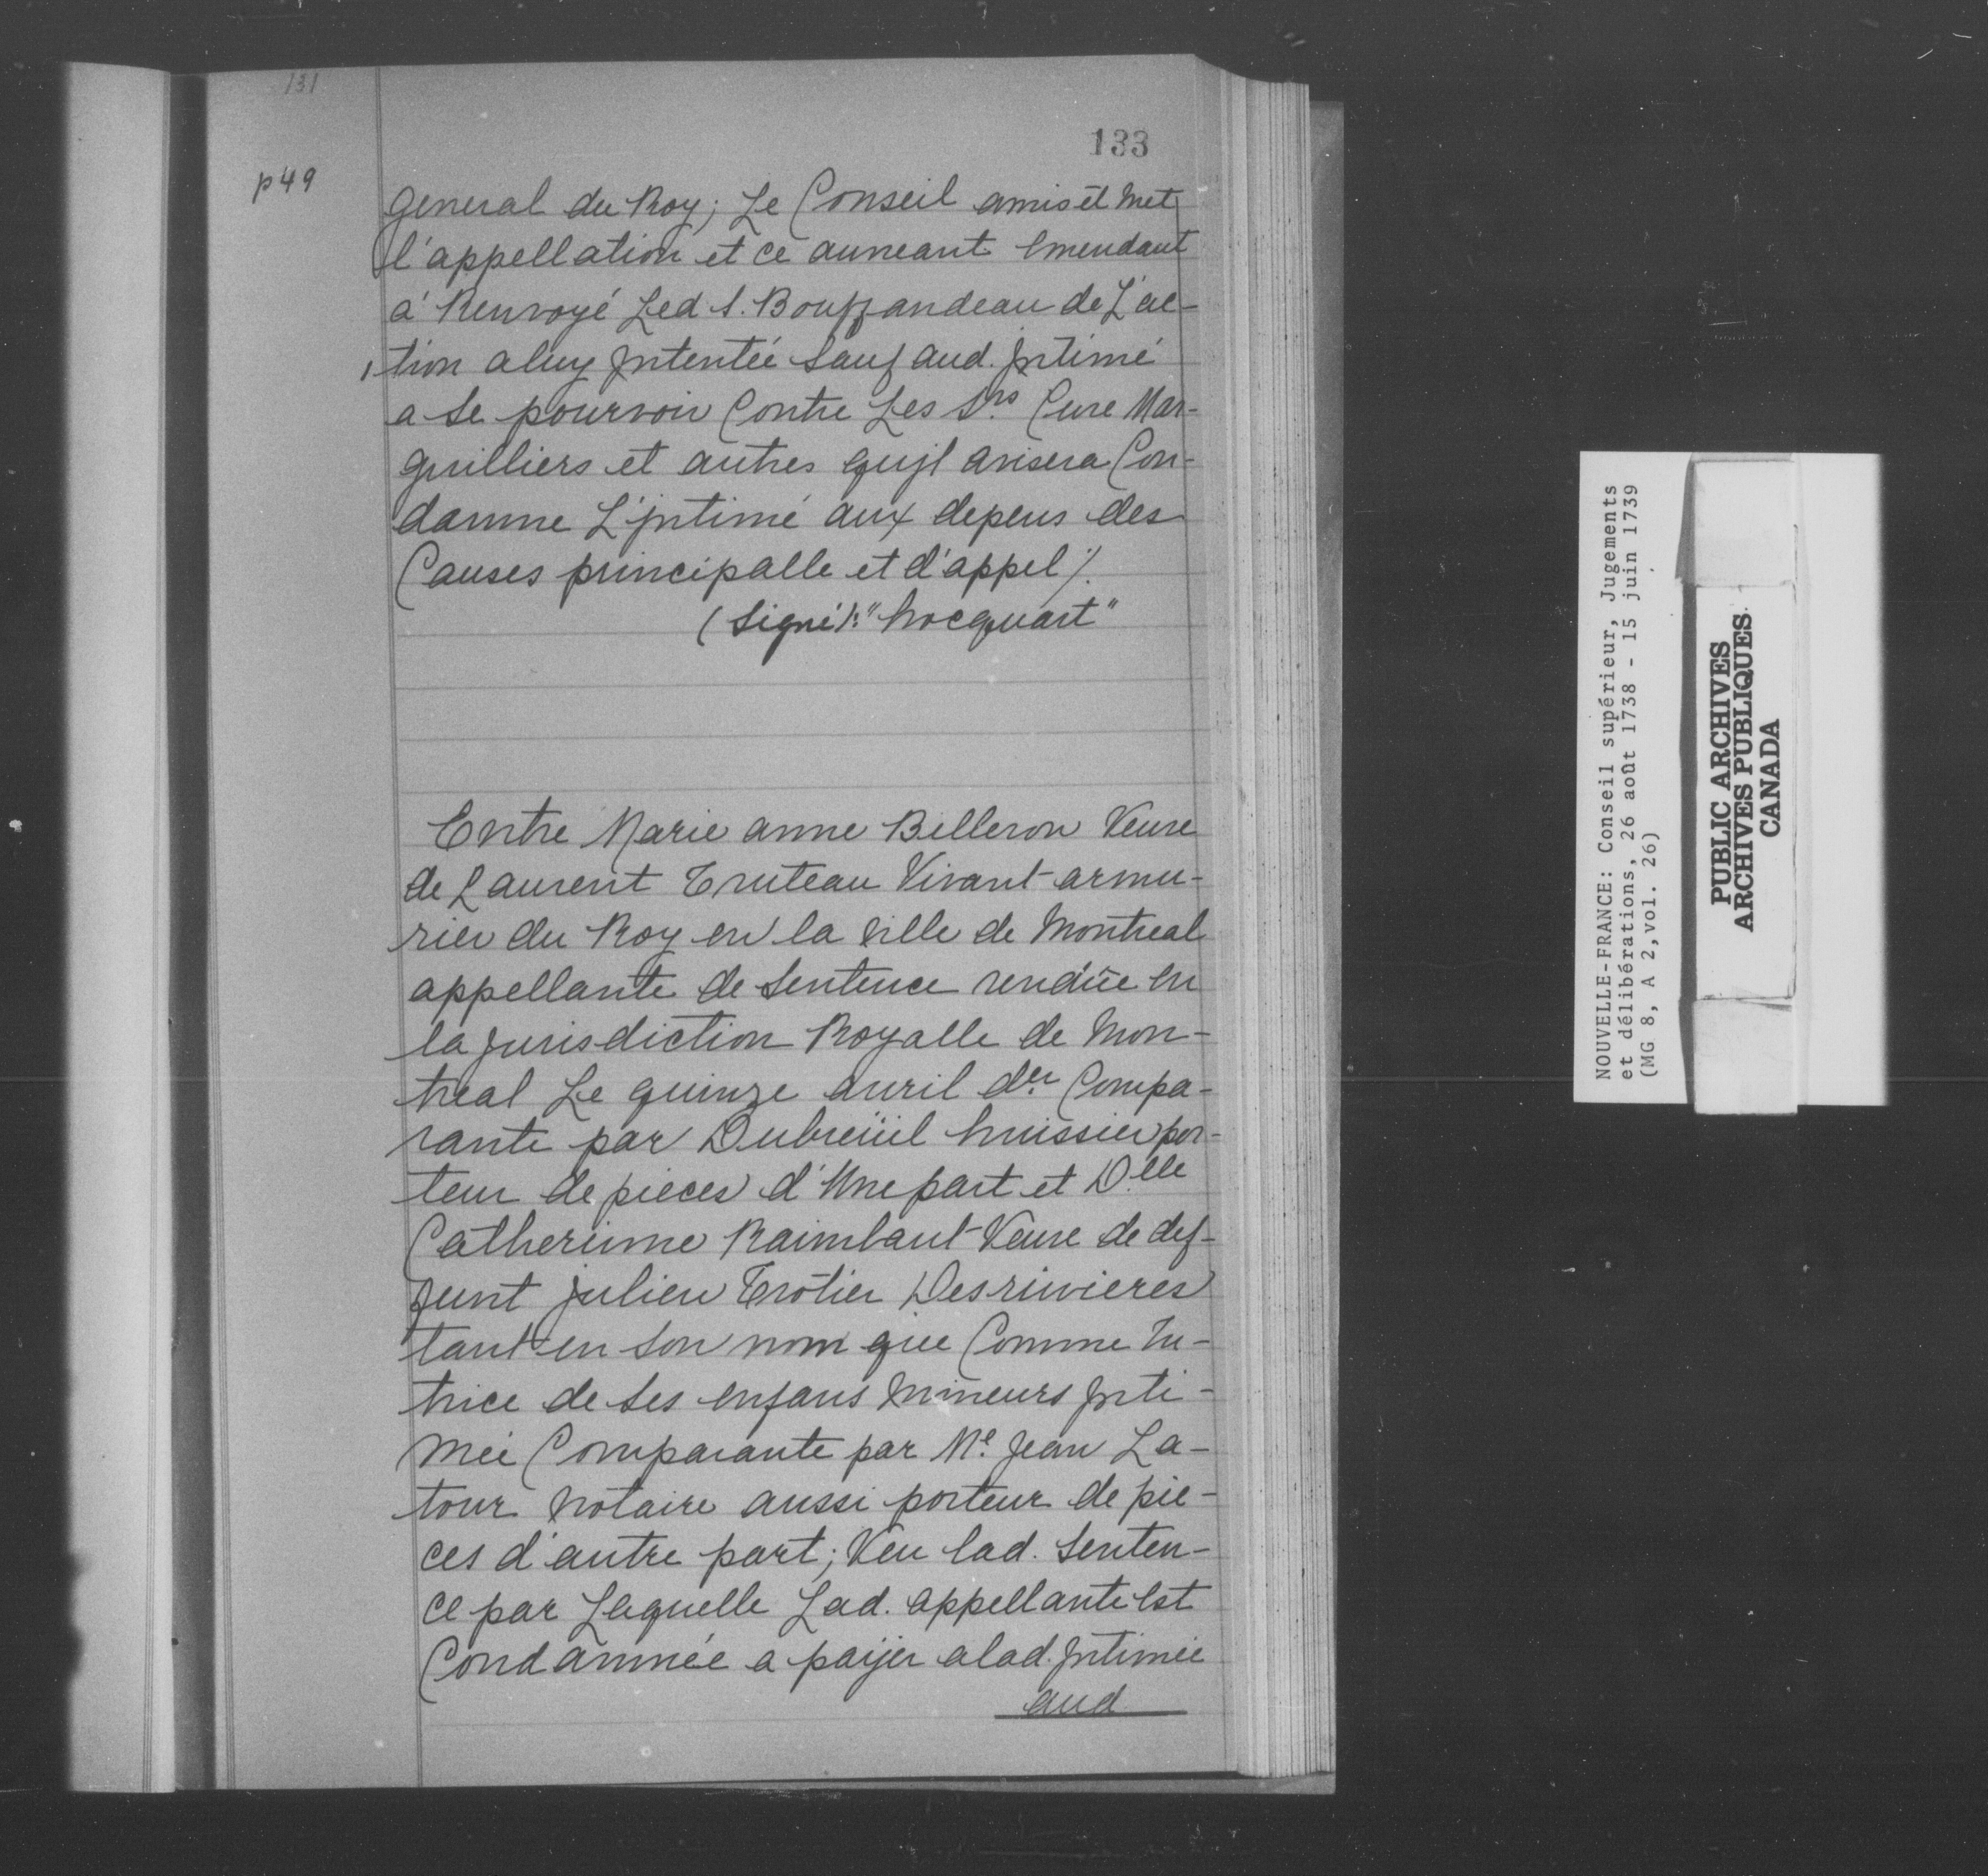 131
133
p 49
general du Roy; Le Conseil amis et met
l'appellation et ce auneant Emendant
à Renvoyé Led S. Bouffandeau de L'ac-
tion aluy Jntentée Sauf aud. Jntimé
a se pourvoir Contre Les Srs Cure Mar-
guilliers et autres qujl avisera Con-
damne L'jntimé aux depens des
Causes principalle et d'appel ./.
(Signé): "hocquart"
Entre Marie anne Billeron Veuve
de Laurent Truteau Vivant armu-
rier du Roy en la Ville de Montreal
appellante de Sentence rendüe en
la Jurisdiction Royalle de Mon-
treal Le quinze avril der Compa-
rante par Dubreüil huissier por-
teur de pieces d'Une part et D.lle
Catherinne Raimbault Veuve de def-
funt julien Trotier Desrivieres
tant en Son nom que Comme Tu-
trice de Ses enfans Mineurs Jnti-
Mée Comparante par Me. Jean La-
tour Notaire aussi porteur de pie-
ces d'autre part; Veu lad. Senten-
ce par Laquelle Lad. appellante Est
Condamnée a paÿer alad. Jntimée
aud
NOUVELLE-FRANCE: Conseil supérieur, Jugements
et délibérations, 26 août 1738 - 15 juin 1739
(MG 8, A 2,vol. 26)
PUBLIC ARCHIVES
ARCHIVES PUBLIQUES
CANADA